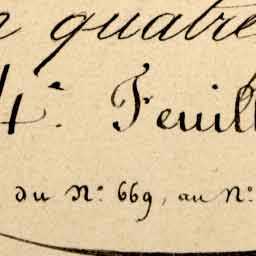 quatre
4e. Feuill
du No: 669, au No: